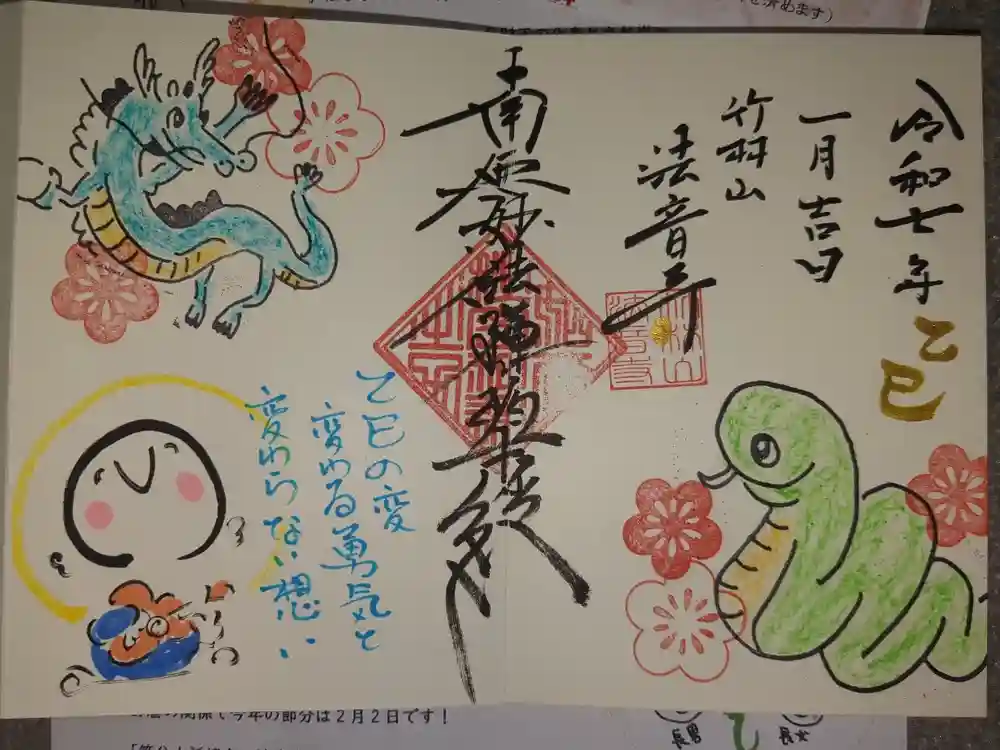 令和七年
乙巳
一月吉日
竹林山
法音寺
南無妙法蓮華経
乙巳の変
変わる勇気と
変わらない想い
の関係で今年の節分は2月2日です!
長男
長女